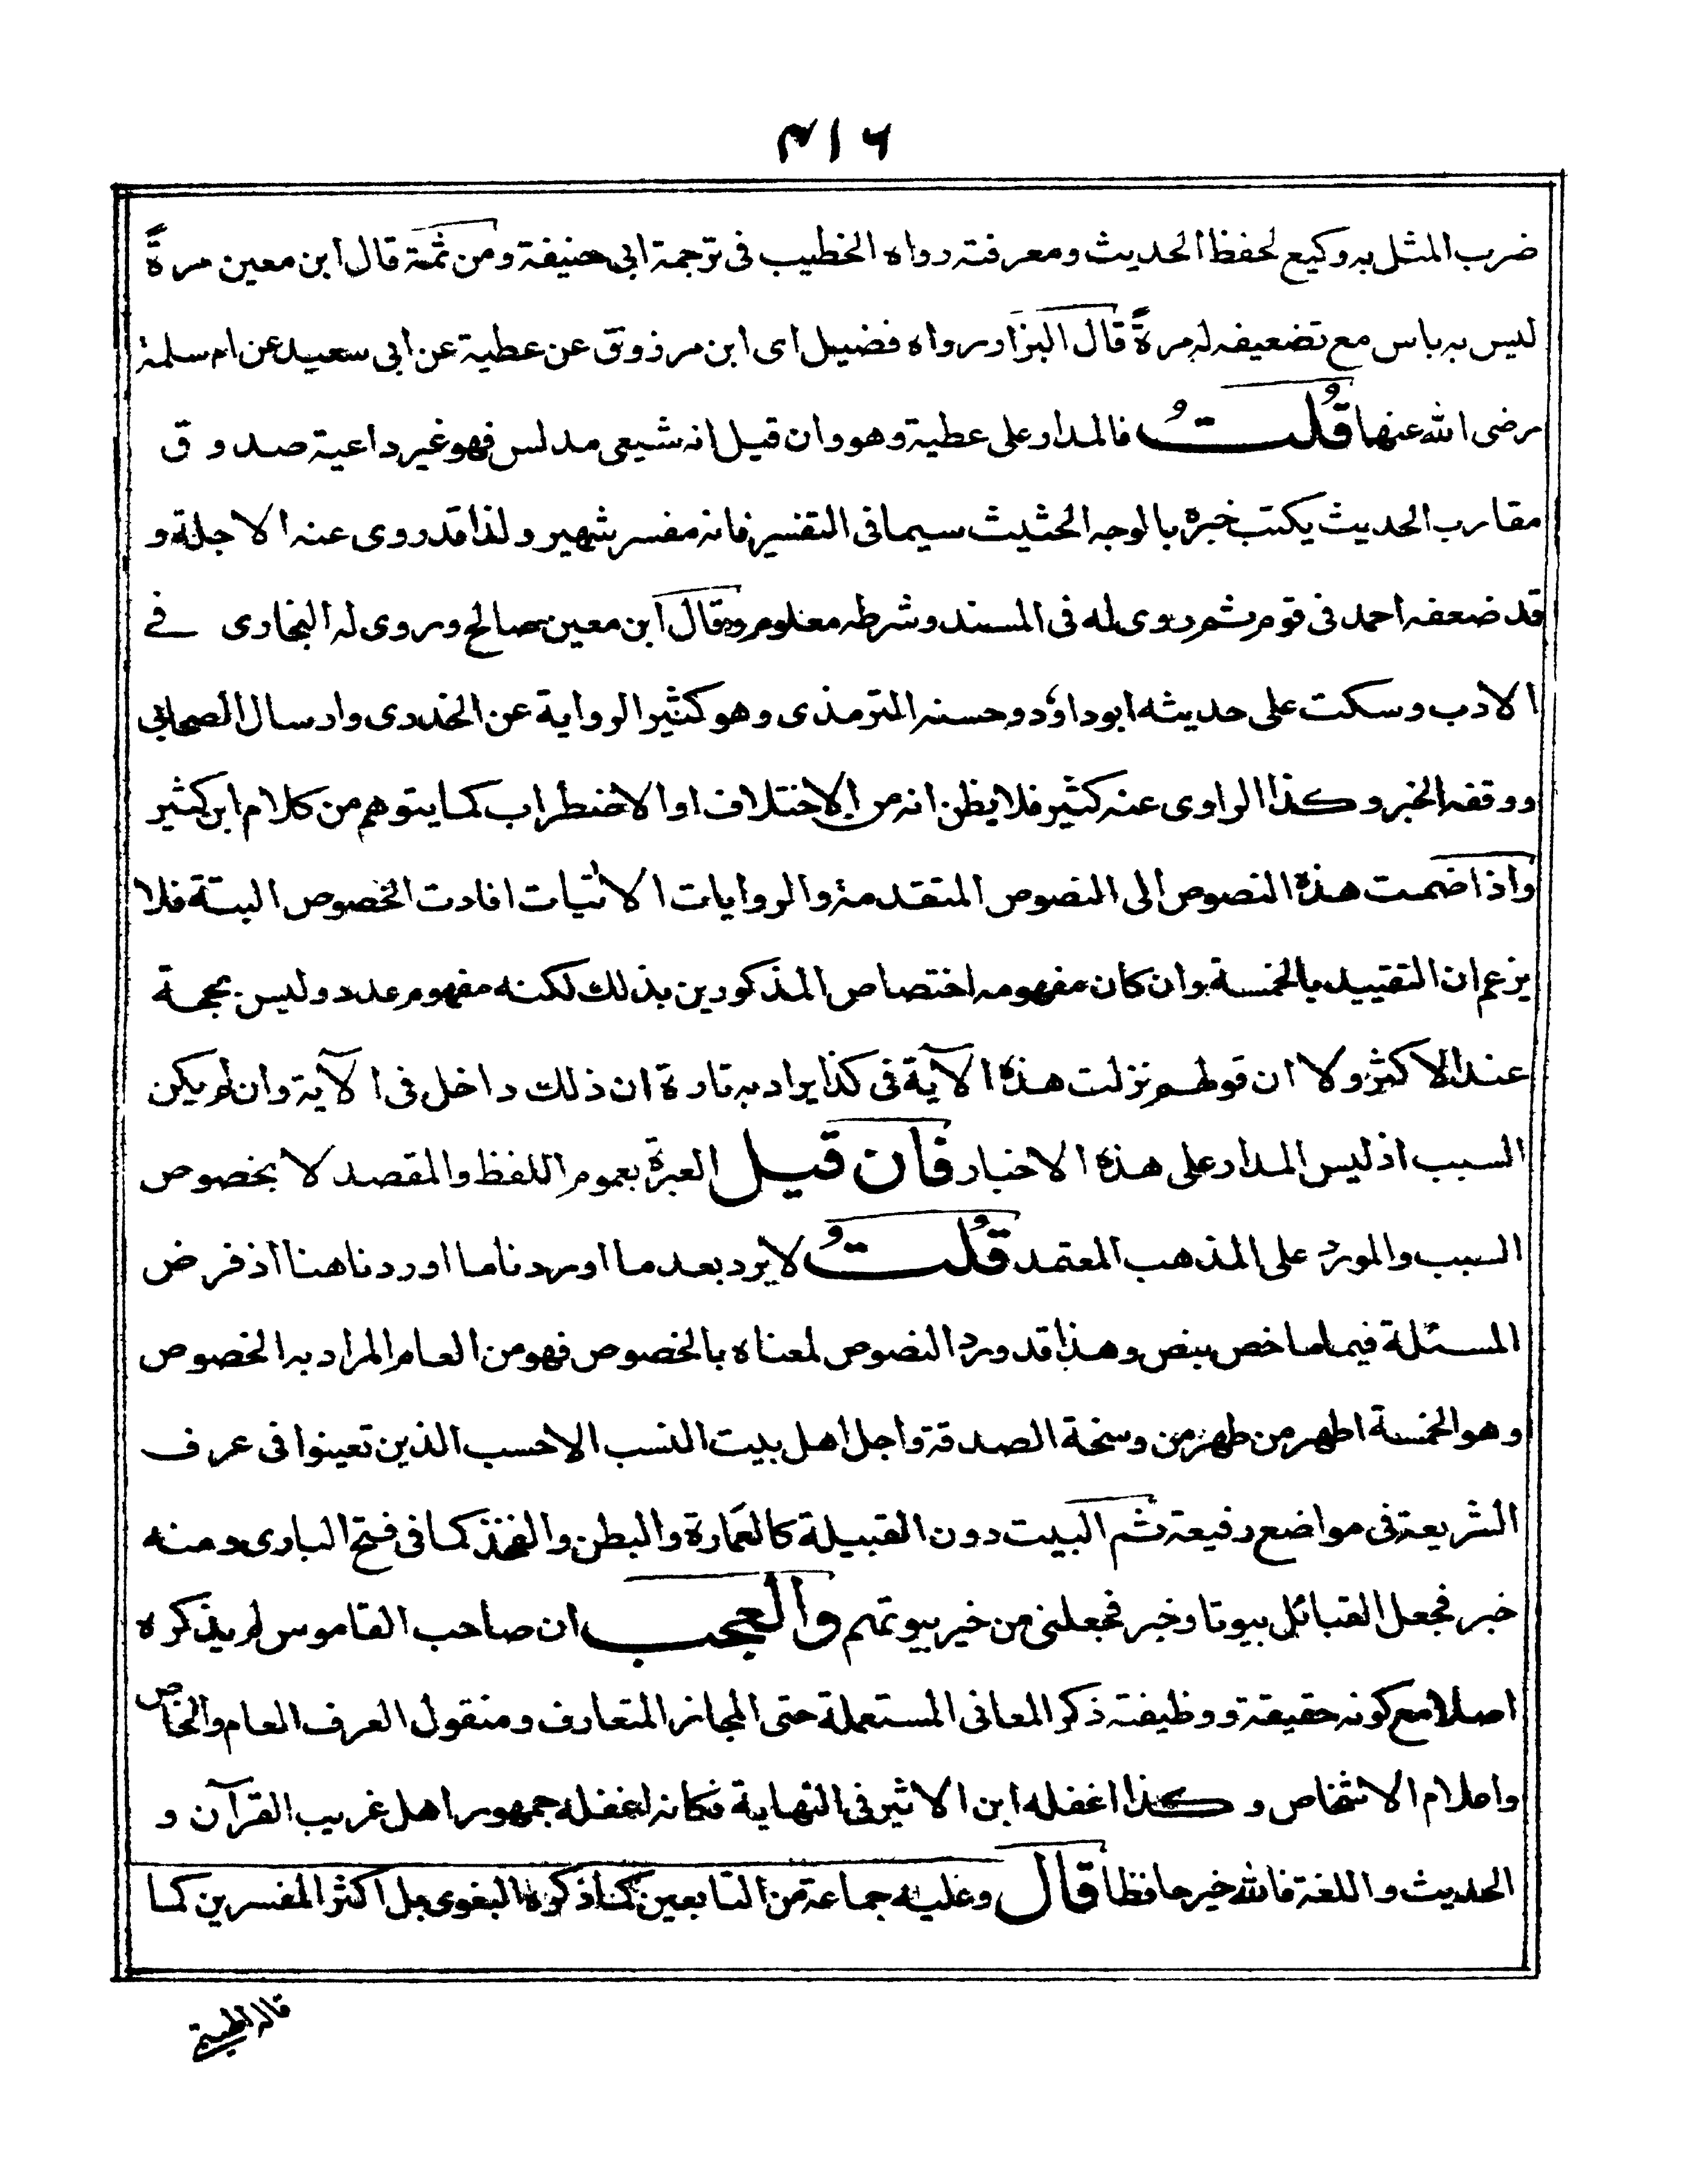 ۴۱۶
ضرب المثل به وكيع لحفظ الحديث ومعرفته رواه الخطيب فى ترجمة ابى حنيفة ومن ثمة قال ابن معين مرةً
ليس به باس مع تضعيفه له مرةً قال البزار ورواه فضيل اى ابن مرزوق عن عطية عن ابى سعيد عن ام سلمة
رضى الله عنها قُلتُ فالمدار على عطية وهو وان قيل انه شيعى مدلس فهو غير داعية صدوق
مقارب الحديث يكتب خبره بالوجه الحثيث سيما فى التفسير فانه مفسر شهير ولذا قد روى عنه الاجلة و
قد ضعفه احمد فى قوم ثم روى له فى المسند وشرطه معلوم وقال ابن معين صالح وروى له البخارى فے
الادب وسكت على حديثه ابوداؤد وحسنه الترمذى وهو كثير الرواية عن الخدرى وارسال الصحابى
ووقفه الخبر وكذا الراوى عنه كثير فلا يظن انه من الاختلاف او الاضطراب كما يتوهم من كلام ابن كثير
واذا ضمت هذه النصوص الى النصوص المتقدمة والروايات الاتيات افادت الخصوص البتة فلا
يزعم ان التقييد بالخمسة وان كان مفهومه اختصاص المذكورين بذلك لكنه مفهوم عدد وليس بحجة
عند الاكثر ولا ان قولهم نزلت هذه الآية فى كذا يراد به تارة ان ذلك داخل فى الآية وان لم يكن
السبب اذ ليس المدار على هذه الاخبار فان قيل العبرة بعموم اللفظ والمقصد لا بخصوص
السبب والمورد على المذهب المعتمد قُلتُ لا يرد بعد ما اوردنا ما اوردنا هنا اذ فرض
المسئلة فيما ما خص بنص وهذا قد ورد النصوص لمعناه بالخصوص فهو من العام المراد به الخصوص
وهو الخمسة اطهر من طهر من وسخة الصدقة واجل اهل بيت النسب الاحسب الذين تعينوا فى عرف
الشريعة فى مواضع رفيعة ثم البيت دون القبيلة كالعَمارة والبطن والفخذ كما فى فتح البارى ومنه
خبر فجعل القبائل بيوتا وخبر فجعلنى من خير بيوتهم والعجب ان صاحب القاموس لم يذكره
اصلا مع كونه حقيقة ووظيفته ذكر المعانى المستعملة حتى المجاز المتعارف ومنقول العرف العام والخاص
واعلام الاشخاص وكذا اغفله ابن الاثير فى النهاية فكانه اغفله جمهور اهل غريب القرآن و
الحديث واللغة فالله خير حافظا قال وعليه جماعة من التابعين كما ذكره البغوى بل اكثر المفسرين كما